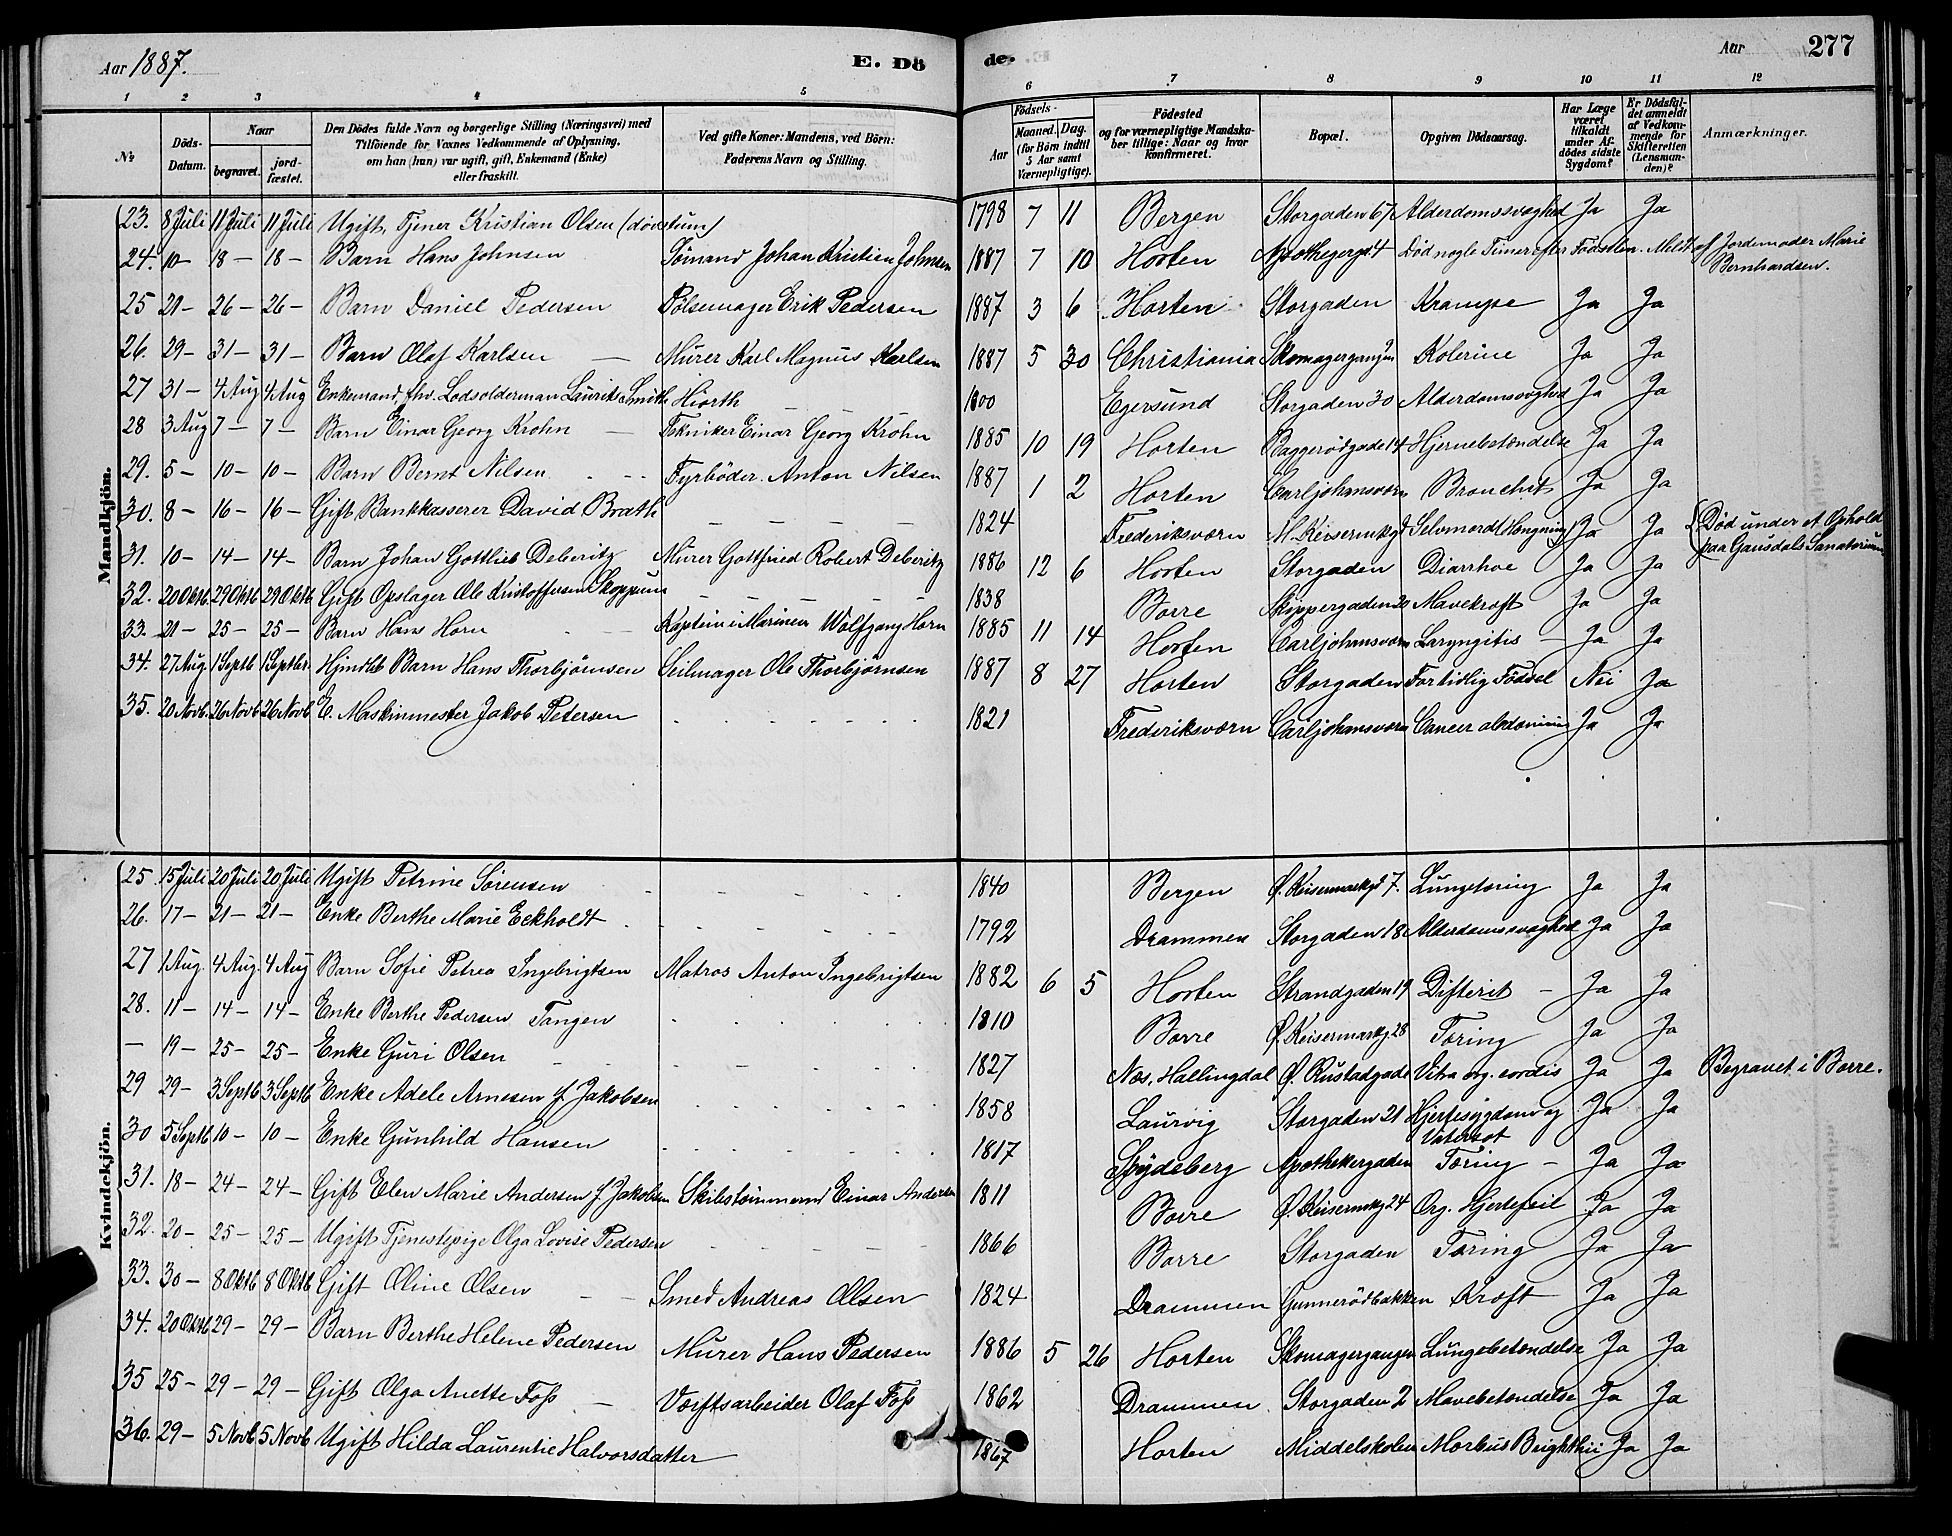 Aar 1887. E. Dö
de. Aar 277
1 2 3 4 5
6 7 8 9 10 11 12
No. Döds-Datum. Naar begravet. jordfæstet. Den Dödes fulde Navn og borgerlige Stilling (Næringsvei) med Tilföiende for Voxnes Vedkommende af Oplysning, om han (hun) var ugift, gift, Enkemand (Enke) eller fraskilt. Ved gifte Koner: Mandens, ved Börn: Faderens Navn og Stilling.
Födsels- Aar Maaned. Dag. (for Börn indtil 5 Aar samt Værnepligtige). Födested og for værnepligtige Mandskaber tillige: Naar og hvor konfirmeret. Bopæl. Opgiven Dödsaarsag. Har Læge været tilkaldt under Afdödes sidste Sygdom? Er Dödsfaldet anmeldt af Vedkommende for Skifteretten (Lensmanden)? Anmærkninger.
Mandkjön.
23. 8 Juli 11 Juli 11 Juli Ugift, Tjener Kristian Olsen (døvstum) 1798 7 11 Bergen Storgaden 67 Alderdomssvaghed Ja Ja
24. 10 – 18 – 18 – Barn Hans Johnsen Sömand Johan Kristian Johnsen 1887 7 10 Horten Apothegergd 4 Död nogle Timer efter Födselen. Meldt af Jordemoder Marie Bernhardsen.
25 21 – 26 – 26 – Barn Daniel Pedersen Pölsemager Erik Pedersen 1887 3 6 Horten Storgaden Krampe Ja Ja
26. 29 – 31 – 31 – Barn Olaf Karlsen — Murer Karl Magnus Karlsen 1887 5 30 Christiania Skomagergangen Kolerine Ja Ja
27 31 – 4 Aug 4 Aug Enkemand, fhv. Lodsolderman Laurits Smith Hiorth 1800 Egersund Storgaden 30 Alderdomsvaghed Ja Ja
28 3 Aug 7 – 7 – Barn Einar Georg Krohn — Tekniker Einar Georg Krohn 1885 10 19 Horten Baggerödgade 14 Hjernebetændelse Ja Ja
29. 5 – 10 – 10 – Barn Bernt Nilsen Fyrböder Anton Nilsen 1887 1 2 Horten Carljohansværn Bronchit Ja Ja
30. 8 – 16 – 16 – Gift Bankkasserer David Bratli 1824 Frederiksværn Selvmord (Hængning) Ja Ja Död under et Ophold paa Gausdals Sanatorium
31. 10 – 14 – 14 – Barn Johan Gottlieb Deberitz Murer Gottfried Robert Deberitz 1886 12 6 Horten Storgaden Diarrhoe Ja Ja
32. 20 Oktb. 29 Oktb 29 Oktb Gift Opslager Ole Kristoffersen Skoppum 1838 Borre Skippergaden 20 Mavekræft Ja Ja
33. 21 – 25 – 25 – Barn Hans Horn Kaptein i Marinen Wolfgang Horn 1885 11 14 Horten Carljohansværn Laryngitis – Ja Ja
34. 27 Aug. 1 Septb 1 Septbr. Hjmdbt Barn Hans Thorbjörnsen Seilmager Ole Thorbjörnsen 1887 8 27 Horten Storgaden Fortidlig Födsel Nei Ja
35. 20 Novb. 26 Novb 26 Novb E. Maskinmester Jakob Petersen 1821 Frederiksværn Carljohansværn Cancer abdominis Ja Ja
Kvindekjön.
25. 15 Juli 20 Juli 20 Juli Ugift Petrine Sörensen 1840 Bergen Ø. Keisermarkgd 7. Lungetæring Ja Ja
26. 17 – 21 – 21 – Enke Berthe Marie Eckholdt 1792 Drammen Storgaden 18 Alderdomssvaghed Ja Ja
27 1 Aug. 4 Aug. 4 Aug Barn Sofie Petrea Ingebrigtsen Matros Anton Ingebrigtsen 1882 6 5 Horten Strandgaden 19 Difterit – Ja Ja
28. 11 – 14 – 14 – Enke Berthe Pedersen Tangen 1810 Borre Ø. Keisermarkg. 28 Tæring Ja Ja
— 19 – 25 – 25 – Enke Guri Olsen 1827 Næs, Hallingdal Ø. Rustadgade Vitra org. cordis Ja Ja Begravet i Borre.
29 29 – 3 Septb 3 Septb Enke Adele Arnesen f. Jakobsen 1858 Laurvig Storgaden 21 Hjertesygdom og Vatersot Ja Ja
30 5 Septb 10 – 10 – Enke Gunhild Hansen 1817 Spydeberg Apothekergaden Tæring – Ja Ja
31. 18 – 24 – 24 – Gift Elen Marie Andersen f. Jakobsen Skibstömmermd Einar Andersen 1811 Borre Ø. Keisermkg 24 Org. Hjertefeil Ja Ja
32. 20 – 25 – 25 – Ugift Tjenestepige Olga Lovise Pedersen 1866 Borre Storgaden Tæring Ja Ja
33. 30 – 8 Oktb 8 Oktb Gift Oline Olsen — Smed Andreas Olsen 1824 Drammen Gunnerödbakken Kræft Ja Ja
34. 20 Oktb 29 – 29 – Barn Berthe Helene Pedersen Murer Hans Pedersen 1886 5 26 Horten Skomagergangen Lungebetændelse Ja Ja
35 25 – 29 – 29 – Gift Olga Anette Foss — Værftsarbeider Olaf Foss 1862 Drammen Storgaden 2 Mavebetændelse Ja Ja
36. 29 – 5 Novb 5 Novb Ugift Hilda Laurentie Halvorsdatter 1867 Horten Middelskolen Morbus Brighthii Ja Ja